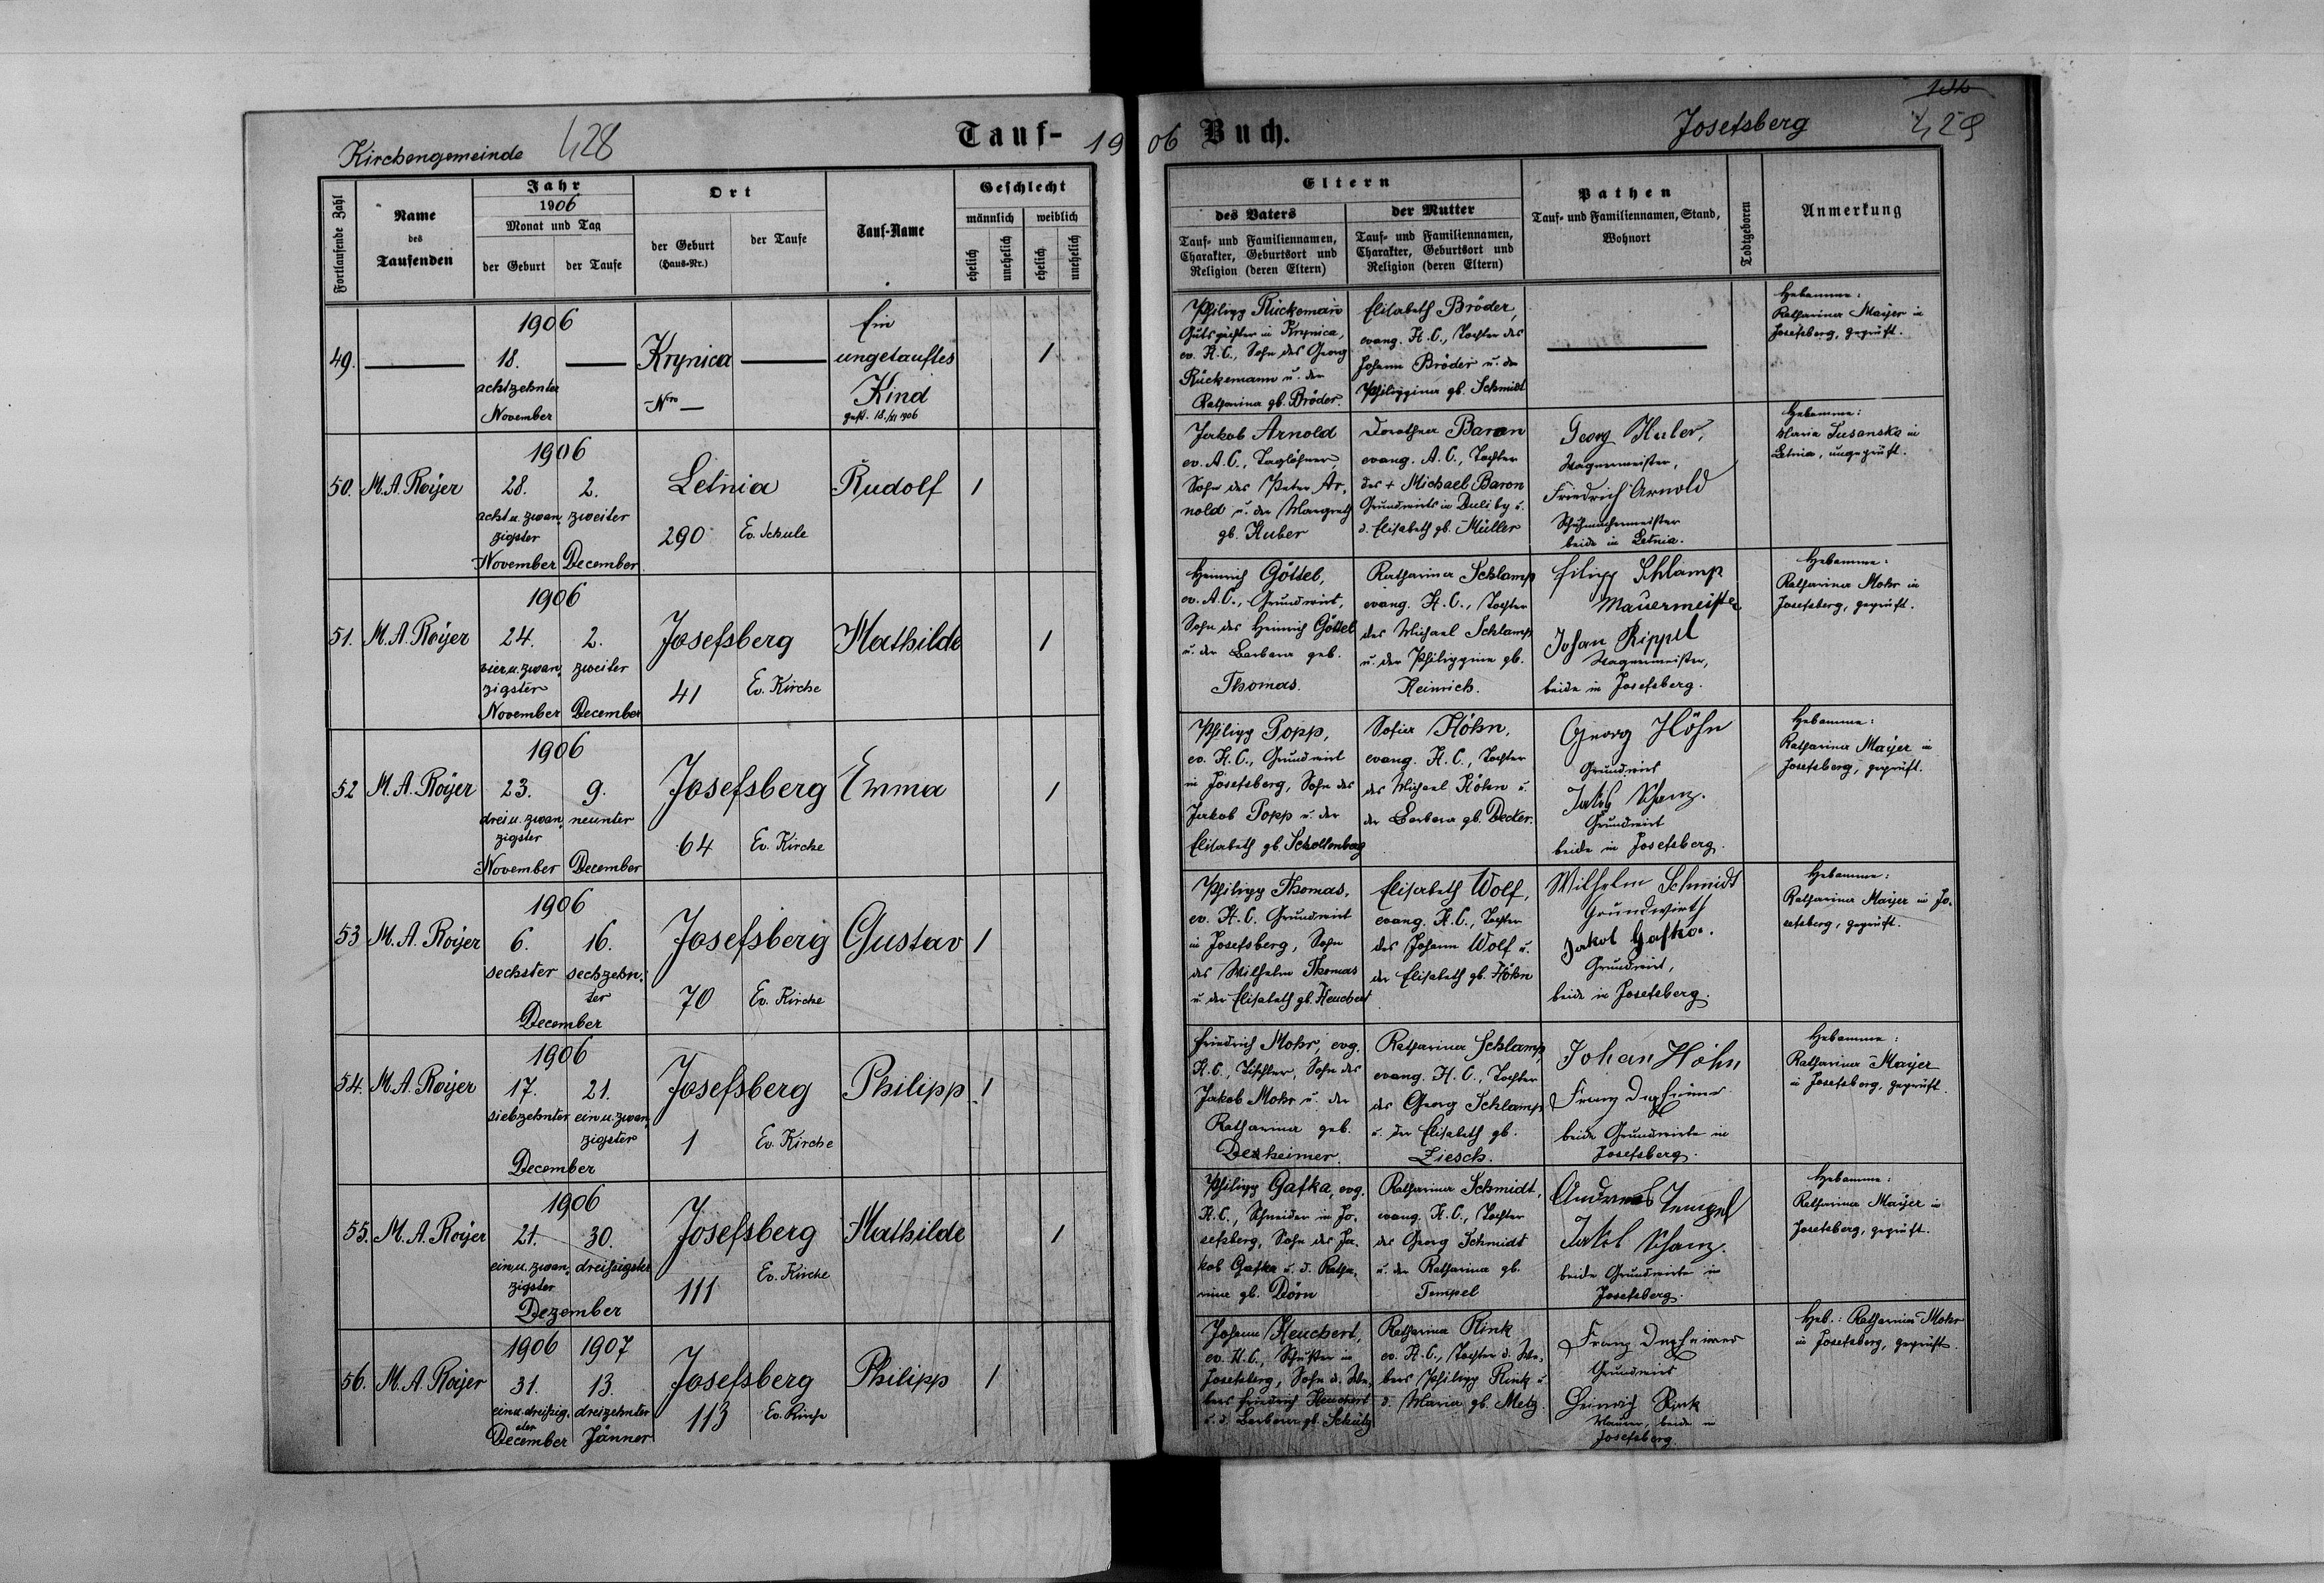 Kirchengemeinde 428 Tauf- 19
Fortlaufende Zahl
Name des Taufenden
Jahr 1906
Monat und Tag
der Geburt der Taufe
Ort
der Geburt (Haus-Nr.) der Taufe
Tauf-Name
Geschlecht
männlich weiblich
ehelich unehelich ehelich unehelich
1906
49. 18. Krynica Ein
achtzehnter ungetauftes 1
November Nro — Kind
gest. 18./XI 1906
1906
50. M. A. Royer 28. 2. Letnia Rudolf 1
acht u. zwan zweiter
zigster 290 Ev. Schule
November December
1906
51. M. A. Royer 24. 2. Josefsberg Mathilde 1
vier u. zwan zweiter
zigster 41 Ev. Kirche
November December
1906
52 M. A. Royer 23. 9. Josefsberg Emma 1
drei u. zwan neunter
zigster 64 Ev. Kirche
November December
1906
53 M. A. Royer 6. 16. Josefsberg Gustav 1
sechster sechzehn-
ter 70 Ev. Kirche
December
1906
54. M. A. Royer 17. 21. Josefsberg Philipp 1
siebzehnter ein u. zwan
zigster 1 Ev. Kirche
December
1906
55. M. A. Royer 21. 30. Josefsberg Mathilde 1
ein u. zwan dreißigster
zigster 111 Ev. Kirche
Dezember
1906 1907
56. M. A. Royer 31. 13. Josefsberg Philipp 1
ein u. dreißig- dreizehnter 113 Ev. Kirche
ster
December Jänner
06 Buch. Josefsberg 429
Eltern
des Vaters der Mutter
Tauf- und Familiennamen, Charakter, Geburtsort und Religion (deren Eltern)
Tauf- und Familiennamen, Charakter, Geburtsort und Religion (deren Eltern)
Pathen
Tauf- und Familiennamen, Stand, Wohnort
Todtgeboren
Anmerkung
Philipp Rückemann
Gutspächter in Krynica,
ev. H. C., Sohn des Georg
Rückemann u. der
Katharina gb. Bröder.
Elisabeth Bröder,
evang. H. C., Tochter des
Johann Bröder u. der
Philippina gb. Schmidt
Hebamme:
Katharina Mayer in
Josefsberg, geprüft.
Jakob Arnold
ev. A. C., Taglöhner,
Sohn des Peter Ar-
nold u. der Margreth
gb. Huber
Dorothea Baron
evang. A. C., Tochter
des + Michael Baron
Grundwirts in Duliby u.
d. Elisabeth gb. Müller
Georg Huler,
Wagnermeister,
Friedrich Arnold
Schuhmachermeister
beide in Letnia.
Hebamme:
Maria Susanska in
Letnia, ungeprüft.
Heinrich Göttel,
ev. A. C., Grundwirt,
Sohn des Heinrich Göttel
u. der Barbara geb.
Thomas.
Katharina Schlamp
evang. H. C., Tochter
des Michael Schlamp
u. der Philippine gb.
Heinrich.
Filipp Schlamp
Mauermeister
Johan Rippel
Wagnermeister,
beide in Josefsberg.
Hebamme:
Katharina Mohr in
Josefsberg, geprüft.
Philipp Popp,
ev. H. C., Grundwirt
in Josefsberg, Sohn des
Jakob Popp u. der
Elisabeth gb. Schollenberg
Sofia Höhn,
evang. H. C., Tochter
des Michael Höhn u.
der Barbara gb. Decker.
Georg Höhn
Grundwirt
Jakob Schanz.
Grundwirt
beide in Josefsberg.
Hebamme:
Katharina Mayer in
Josefsberg, geprüft.
Philipp Thomas,
ev. H. C. Grundwirt
in Josefsberg, Sohn
des Wilhelm Thomas
u. der Elisabeth gb. Heuchert
Elisabeth Wolf,
evang. H. C., Tochter
des Johann Wolf u.
der Elisabeth gb. Höhn
Wilhelm Schmidt
Grundwirth
Jakob Gafka.
Grundwirt,
beide in Josefsberg.
Hebamme:
Katharina Mayer in Jo-
sefsberg, geprüft.
Friedrich Mohr, evg.
H. C., Tischler, Sohn des
Jakob Mohr u. der
Katharina geb.
Dexheimer.
Katharina Schlamp
evang. H. C., Tochter
des Georg Schlamp
u. der Elisabeth gb.
Ziesch.
Johan Höhn
Franz Dexheimer
beide Grundwirte in
Josefsberg.
Hebamme:
Katharina Mayer
in Josefsberg, geprüft.
Philipp Gafka, evg.
H. C., Schneider in Jo-
sefsberg, Sohn des Ja-
kob Gafka u. d. Katha-
rina gb. Dörn
Katharina Schmidt,
evang. H. C., Tochter
des Georg Schmidt
u. der Katharina gb.
Tempel
Andreas Tempel
Jakob Schanz.
beide Grundwirte in
Josefsberg.
Hebamme:
Katharina Mayer in
Josefsberg, geprüft.
Johann Heuchert,
ev. H. C., Schuster in
Josefsberg, Sohn d. We-
bers Friedrich Heuchert
u. d. Barbara gb. Schütz
Katharina Rink
ev. H. C., Tochter d. We-
bers Philipp Rink u
d. Maria gb. Metz.
Franz Dexheimer
Grundwirt
Heinrich Rink
Maurer, beide in
Josefsberg.
Heb.: Katharina Mohr
in Josefsberg, geprüft.